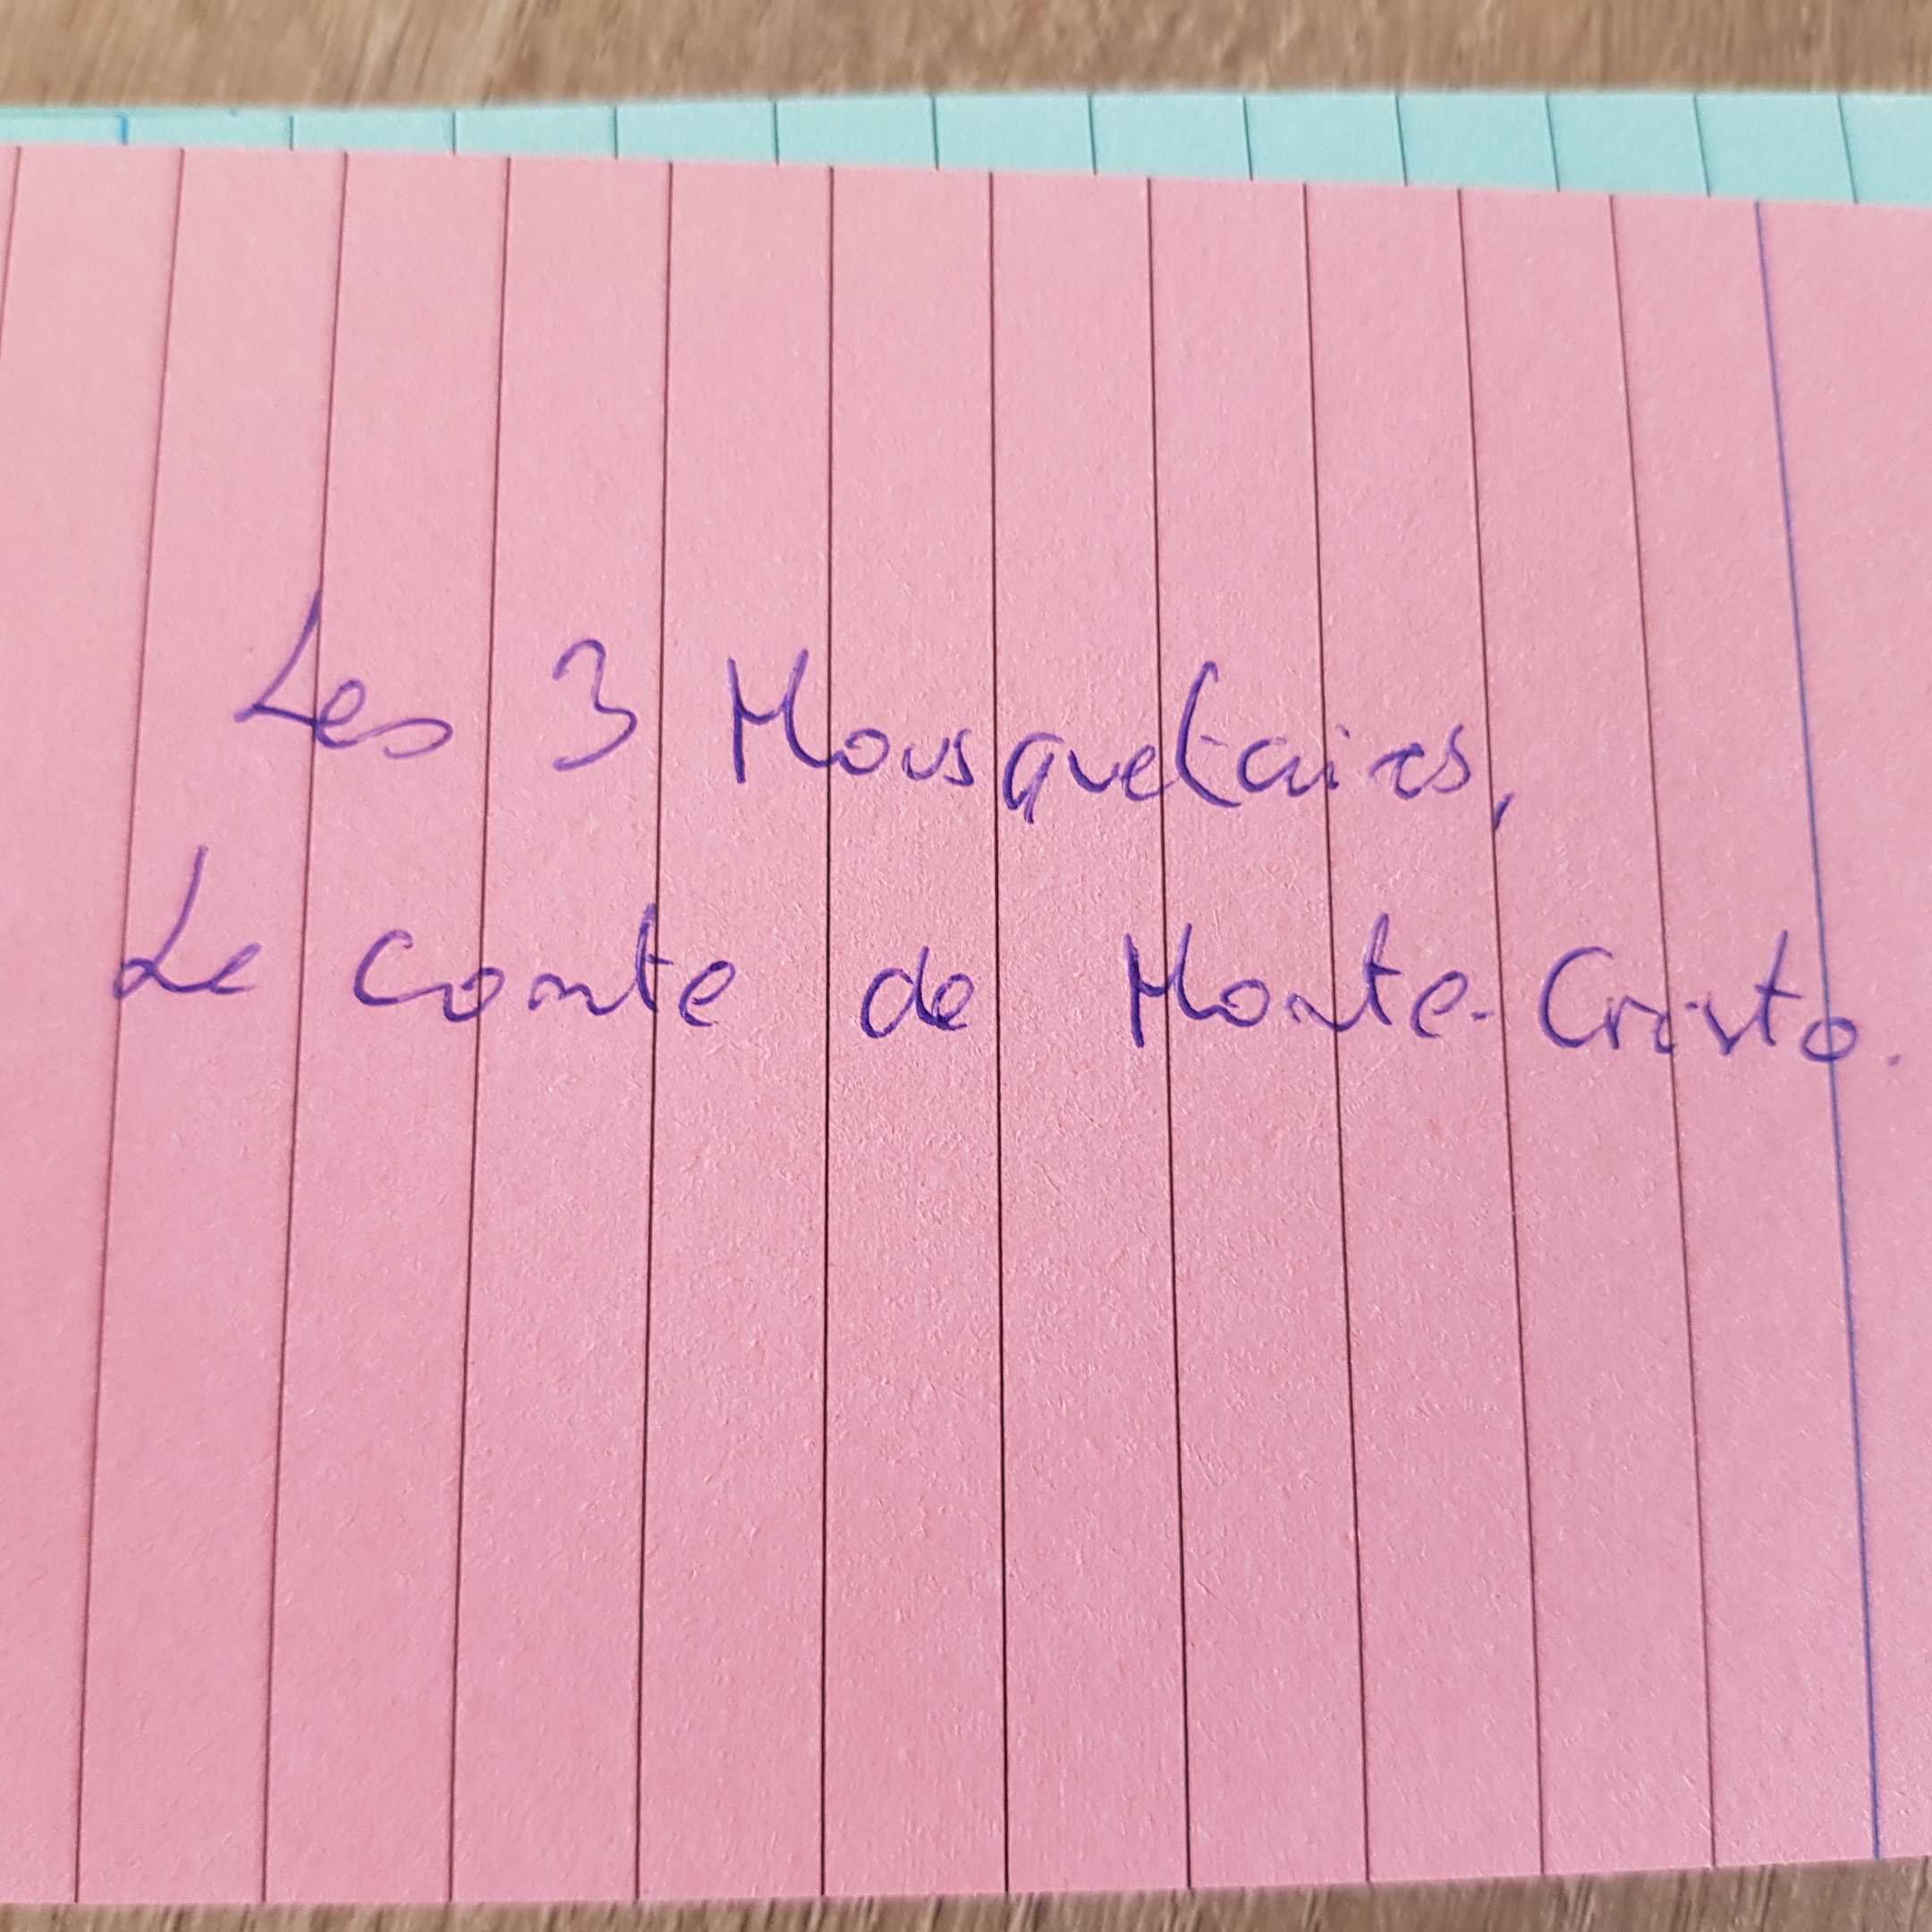 Les 3 Mousquetaires,
Le comte de Monte-Cristo.